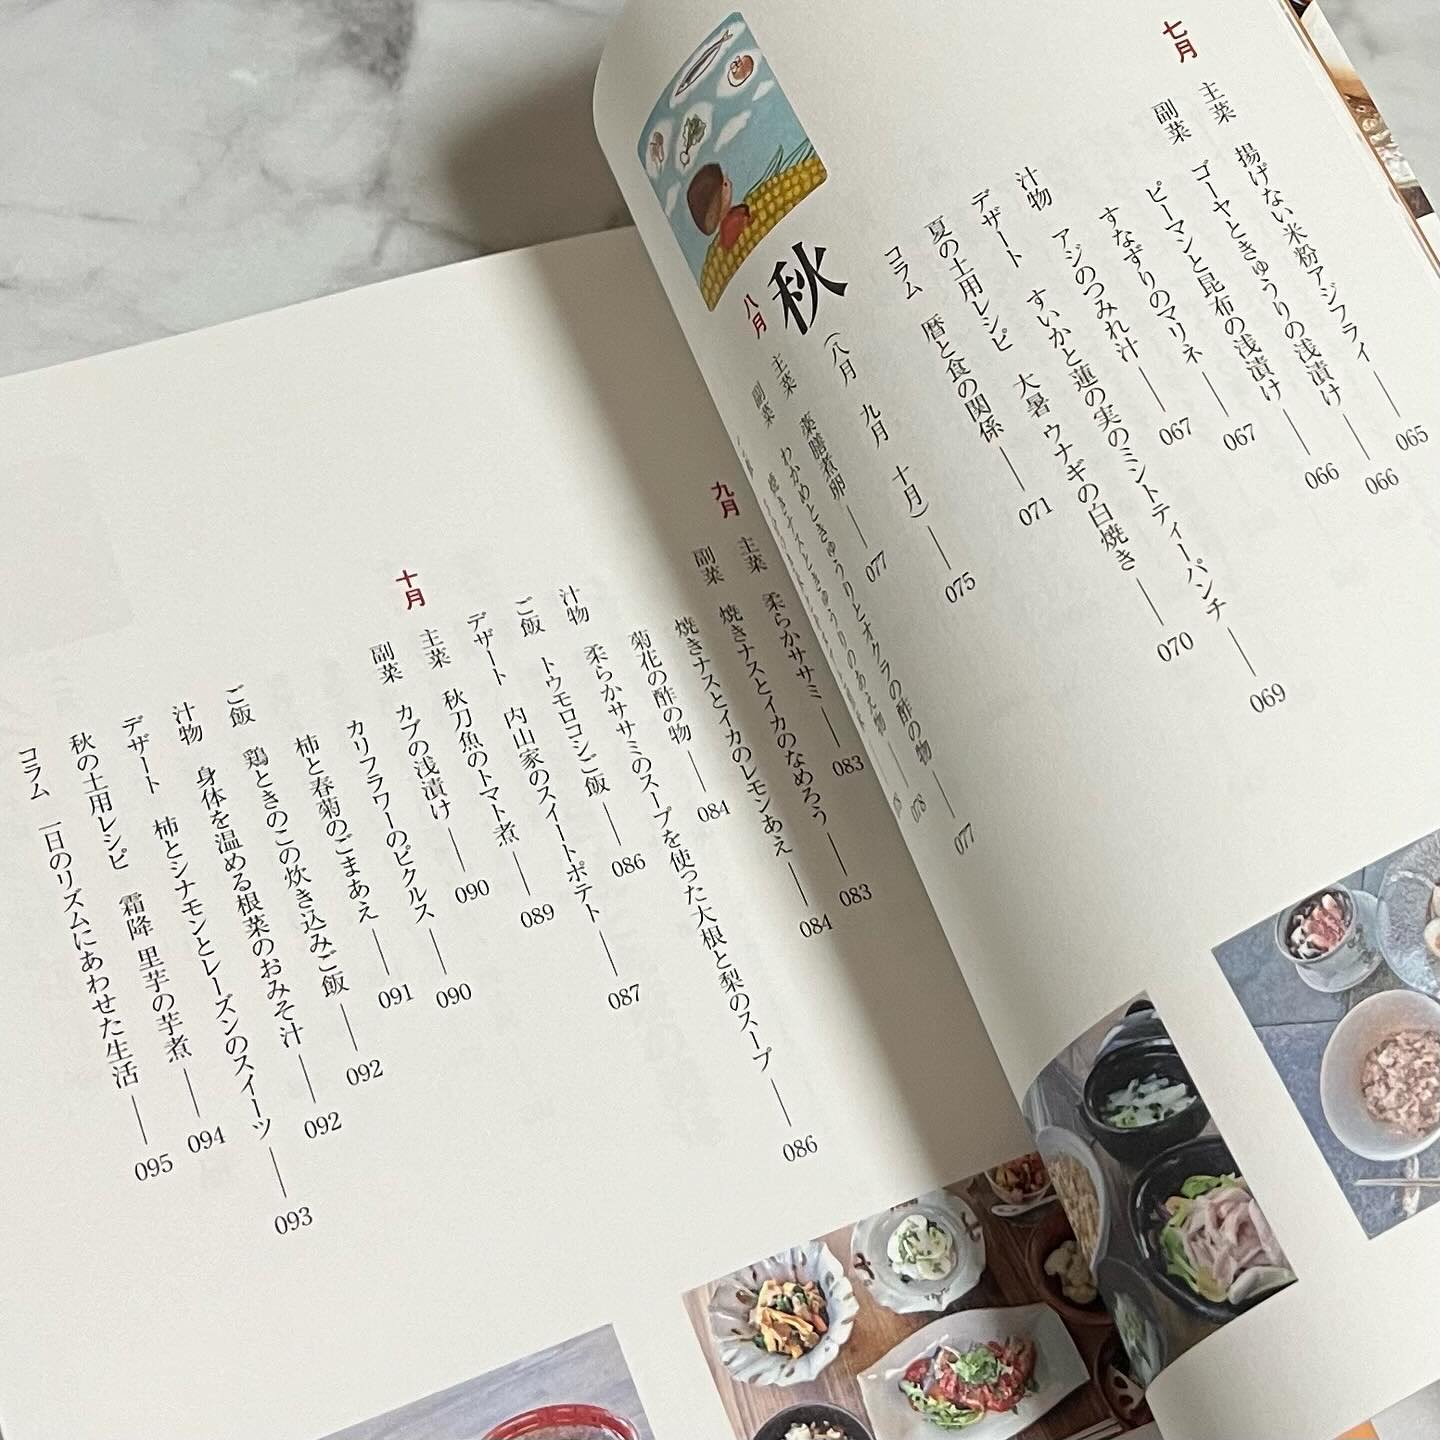 七月
主菜 揚げない米粉アジフライ ― 065
副菜 ゴーヤときゅうりの浅漬け ― 066
ピーマンと昆布の浅漬け ― 066
すなずりのマリネ ― 067
汁物 アジのつみれ汁 ― 067
デザート すいかと蓮の実のミントティーパンチ ― 069
夏の土用レシピ 大暑 ウナギの白焼き ― 070
コラム 暦と食の関係 ― 071
秋 (八月 九月 十月) ― 075
八月
主菜 薬膳煮卵 ― 077
副菜 わかめときゅうりとオクラの酢の物 ― 077
焼きナスときゅうりのあえ物 ― 078
九月
主菜 柔らかササミ ― 083
副菜 焼きナスとイカのなめろう ― 083
焼きナスとイカのレモンあえ ― 084
菊花の酢の物 ― 084
汁物 柔らかササミのスープを使った大根と梨のスープ ― 086
ご飯 トウモロコシご飯 ― 086
デザート 内山家のスイートポテト ― 087
十月
主菜 秋刀魚のトマト煮 ― 089
副菜 カブの浅漬け ― 090
カリフラワーのピクルス ― 090
柿と春菊のごまあえ ― 091
ご飯 鶏ときのこの炊き込みご飯 ― 092
汁物 身体を温める根菜のおみそ汁 ― 092
デザート 柿とシナモンとレーズンのスイーツ ― 093
秋の土用レシピ 霜降 里芋の芋煮 ― 094
コラム 一日のリズムにあわせた生活 ― 095